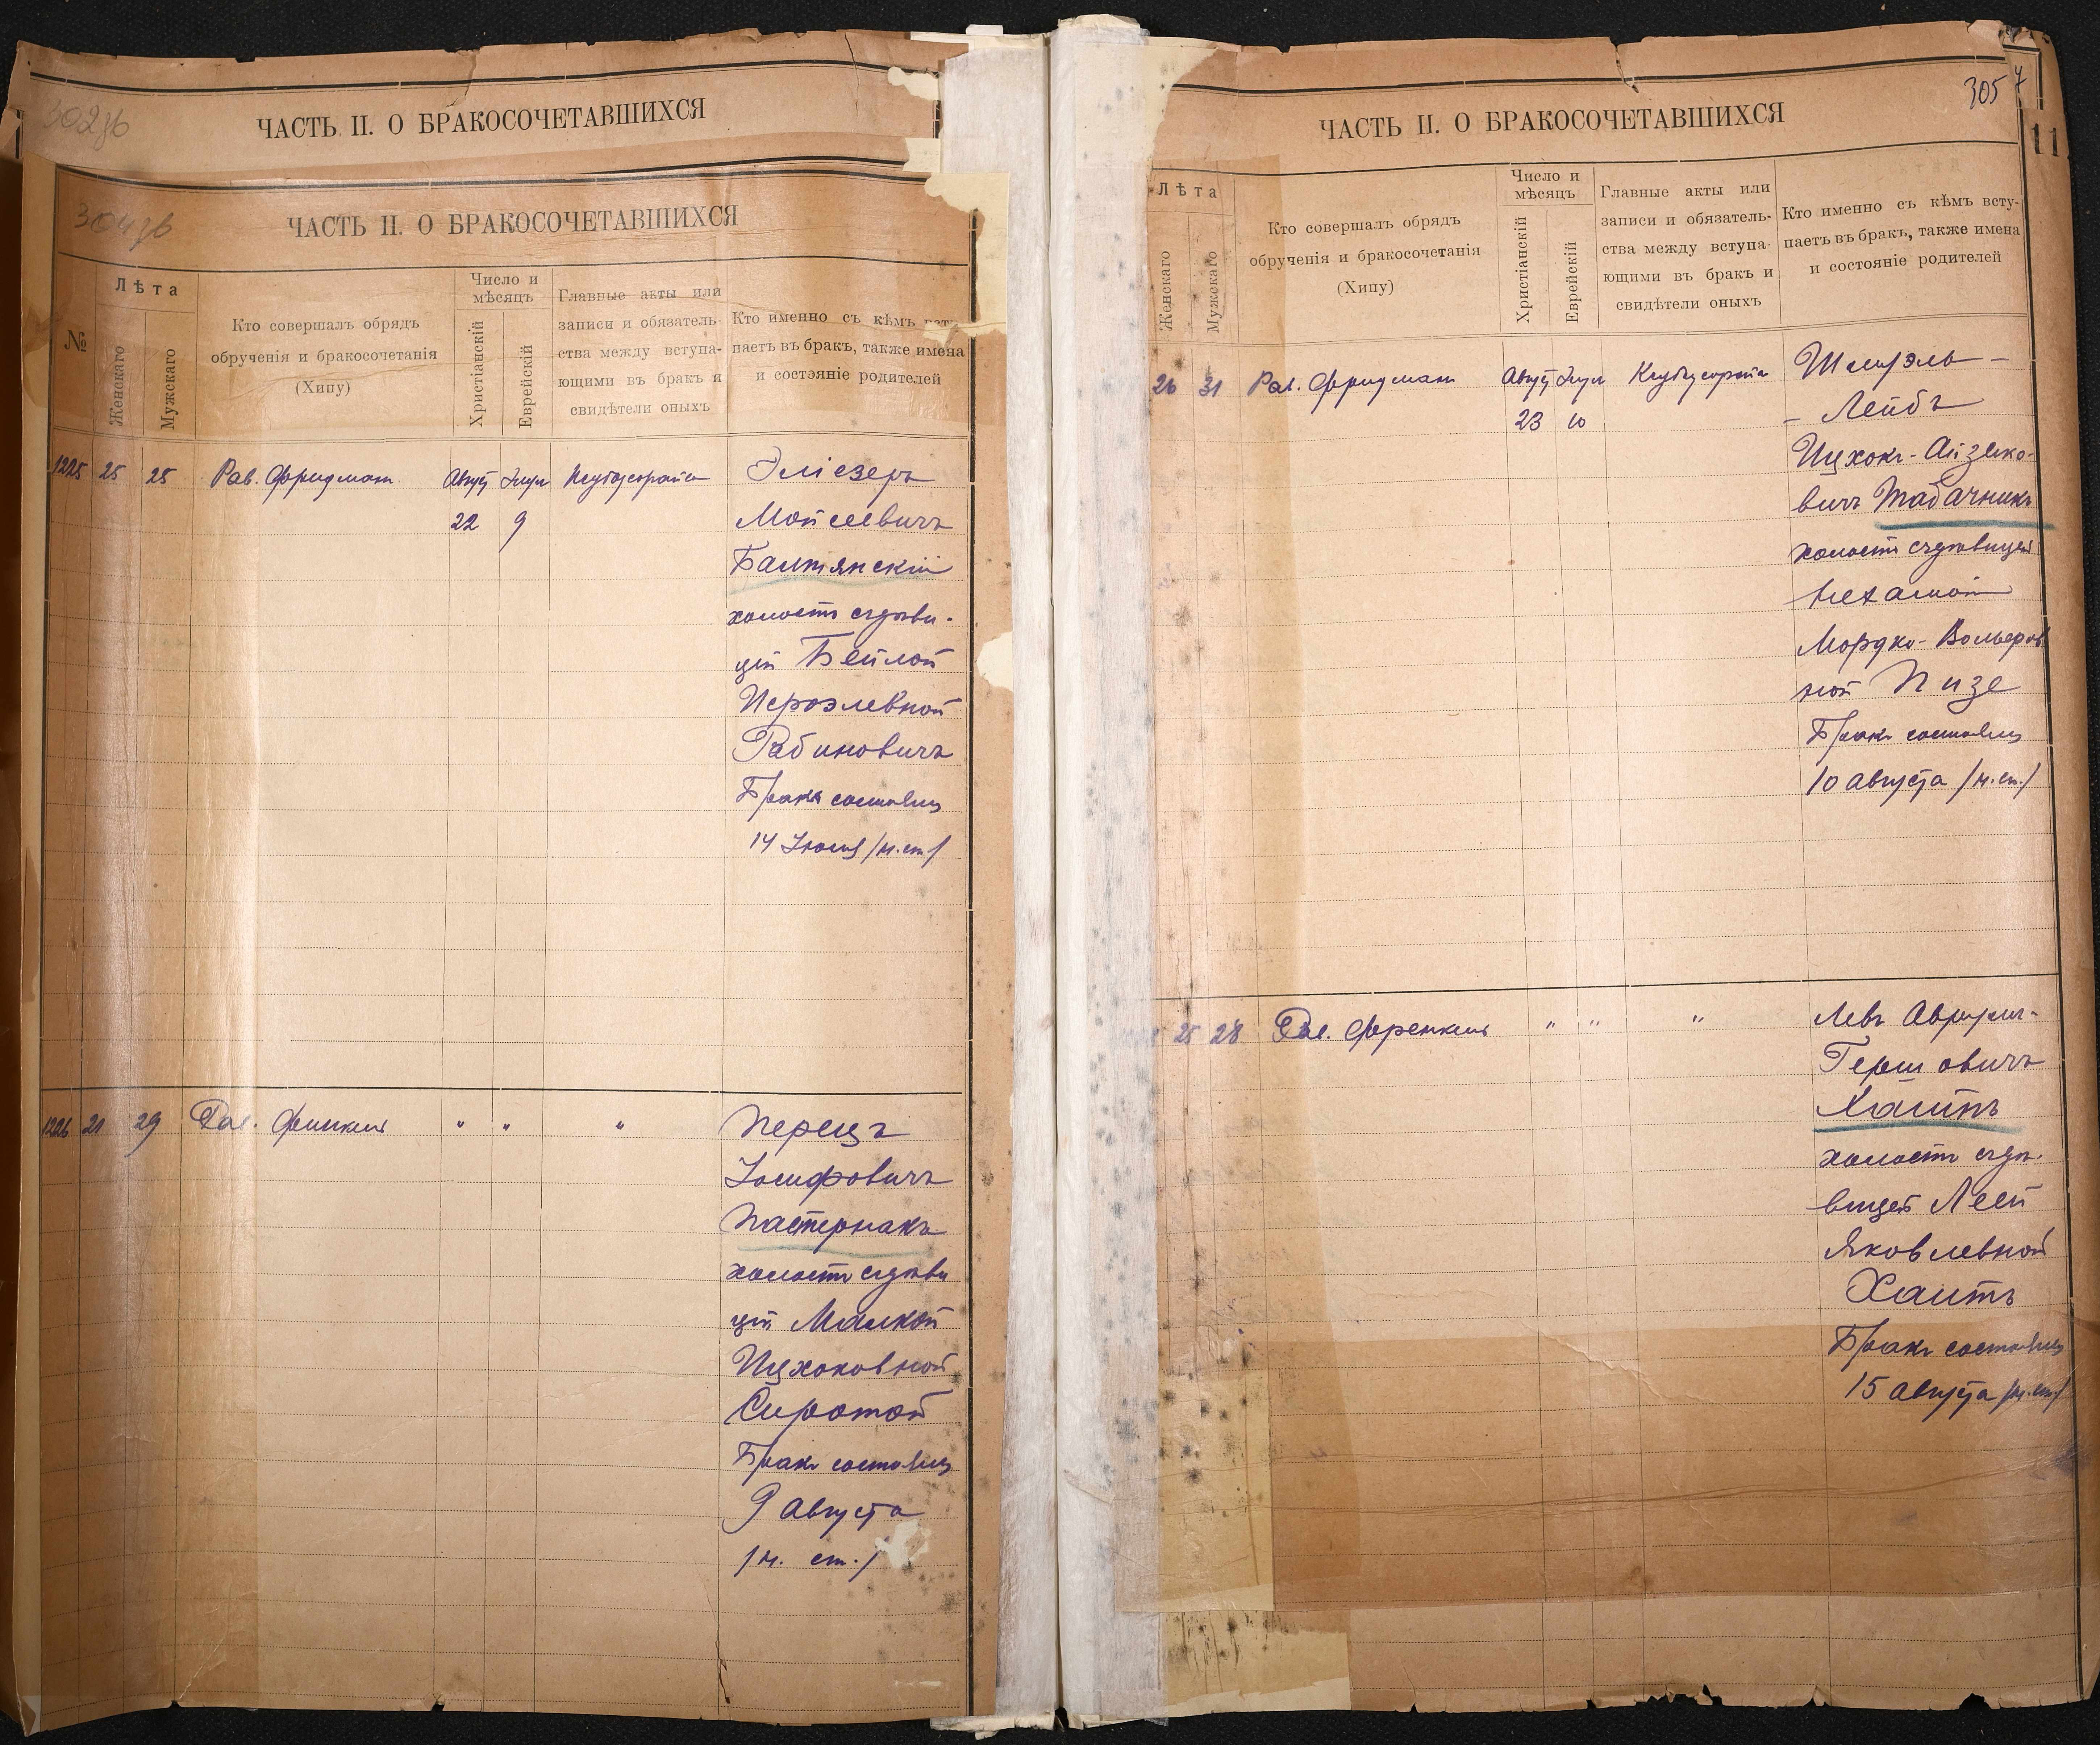 302зв
ЧАСТЬ II. О БРАКОСОЧЕТАВШИХСЯ
304зв
ЧАСТЬ II. О БРАКОСОЧЕТАВШИХСЯ
№
Лѣта
Женскаго
Мужскаго
Кто совершалъ обрядъ
обрученія и бракосочетанія
(Хипу)
Число и
мѣсяцъ
Христіанскій
Еврейскій
Главные акты или
записи и обязатель-
ства между вступа-
ющими въ бракъ и
свидѣтели оныхъ
Кто именно съ кѣмъ
паетъ въ бракъ, также имена
и состояніе родителей
1225 25 25 Рав. Фридман Август
22 9
Эліезеръ
Мойсеевичъ
Балтянскій
холостъ съ дѣви-
цей Бейлой
Исроэлевной
Рабиновичъ
Бракъ состоялся
14 Іюля /н.ст./
1226 21 29 Рав. " " "
Перецъ
Іосифовичъ
Пастернакъ
холостъ съ дѣви
цей Малкой
Ицхоковной
Сиротой
Бракъ состоялся
9 Августа
/н. ст./
305
ЧАСТЬ II. О БРАКОСОЧЕТАВШИХСЯ
11
Лѣта
Женскаго
Мужскаго
Кто совершалъ обрядъ
обрученія и бракосочетанія
(Хипу)
Число и
мѣсяцъ
Христіанскій
Еврейскій
Главные акты или
записи и обязатель-
ства между вступа-
ющими въ бракъ и
свидѣтели оныхъ
Кто именно съ кѣмъ всту-
паетъ въ бракъ, также имена
и состояніе родителей
26 31 Рав. Фридман Август
23 10
Шмирэль-
- Лейбъ
Ицхокъ-Айзико-
вичъ Табачникъ
холостъ съ дѣвицей
Нехамой
Мордко-Вольфов
ной Пизе
Бракъ состоялся
10 Августа /н.ст./
25 28 Рав. Френкель " " "
Левъ
Гершовичъ
Хаитъ
холостъ съ дѣ-
вицей Леей
Яковлевной
Хаитъ
Бракъ состоялся
15 Августа /н.ст/